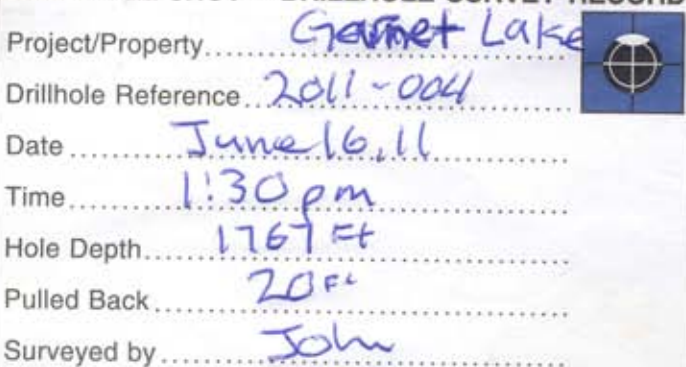 DRILLHOLE SURVEY RECORD
Project/Property Garnet Lake
Drillhole Reference 2011-004
Date June 16, 11
Time 1:30 pm
Hole Depth 1767 Ft
Pulled Back 20 Ft
Surveyed by John